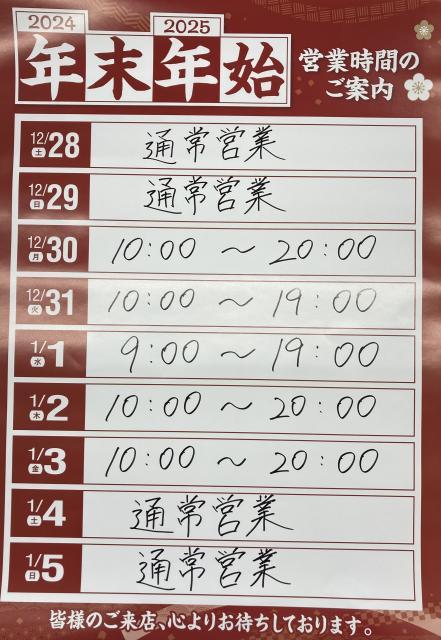 2024 2025
年末年始
営業時間の
ご案内
12/28 土 通常営業
12/29 日 通常営業
12/30 月 10:00 〜 20:00
12/31 火 10:00 〜 19:00
1/1 水 9:00 〜 19:00
1/2 木 10:00 〜 20:00
1/3 金 10:00 〜 20:00
1/4 土 通常営業
1/5 日 通常営業
皆様のご来店、心よりお待ちしております。